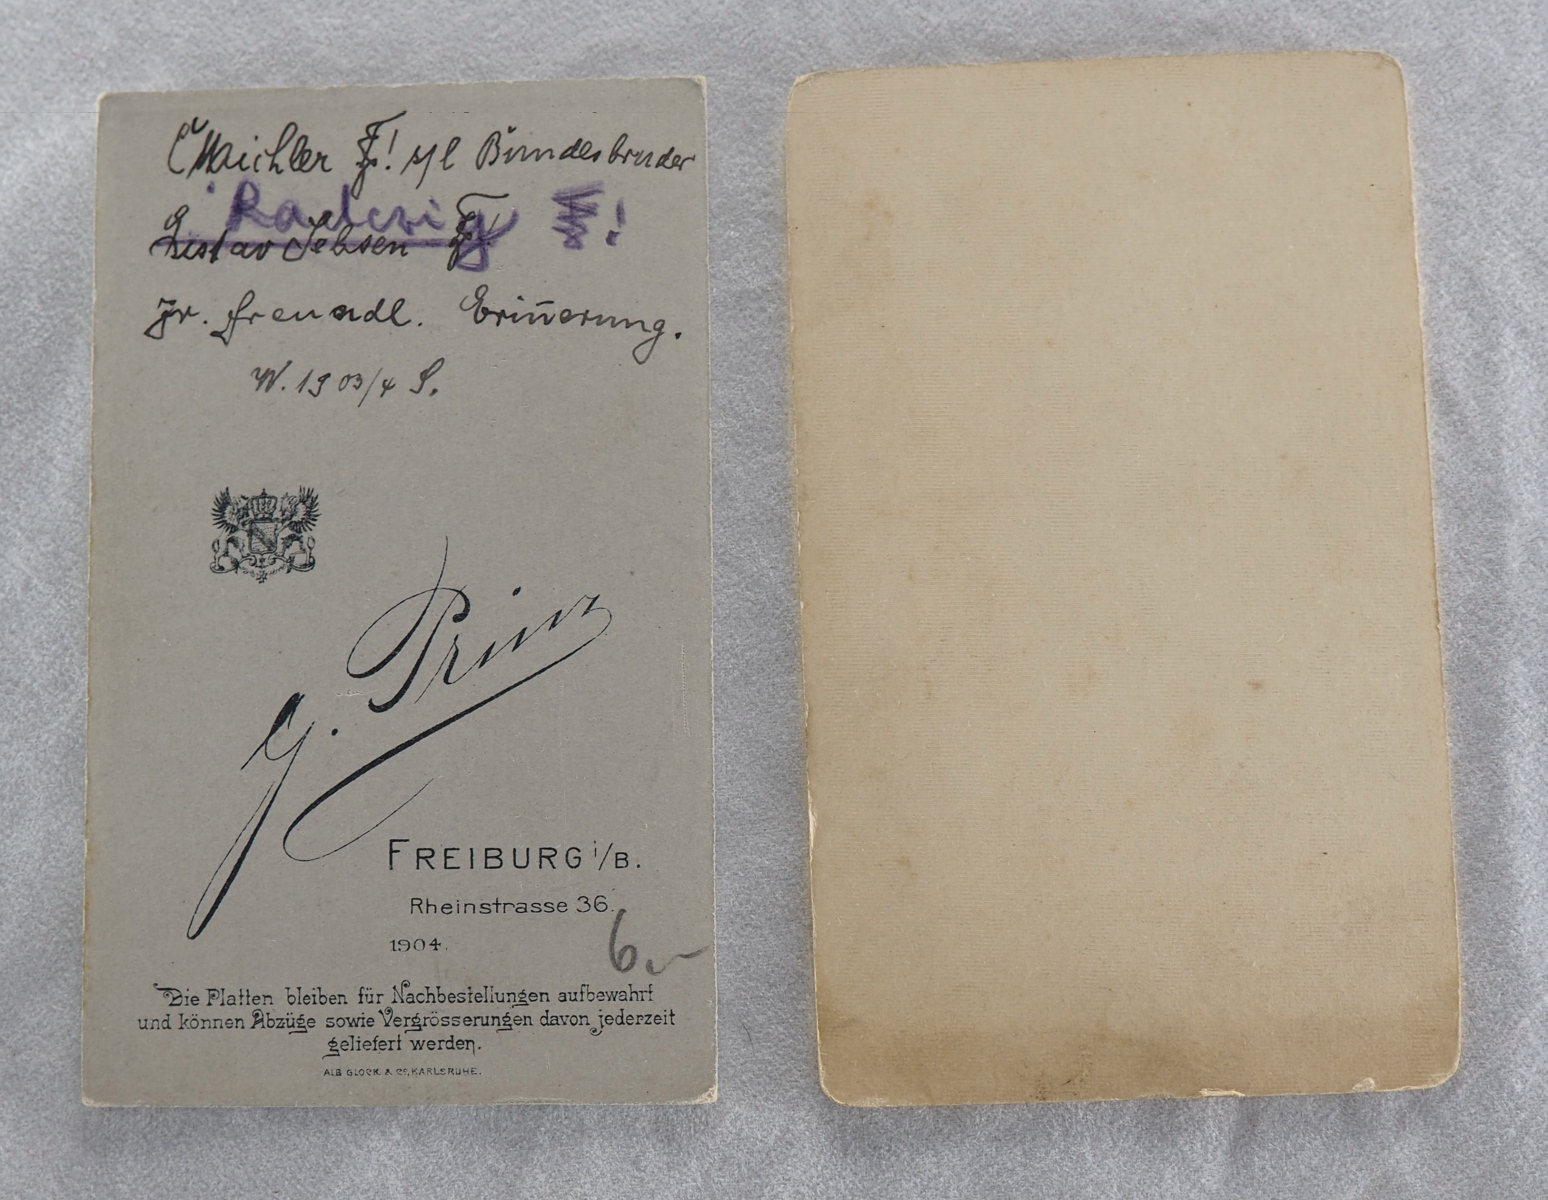 Maichler ! s/l Bundesbruder
Gustav Jebsen
zr. freundl. Erinnerung.
W. 1903/4 S.
G. Prinz
FREIBURG i/B.
Rheinstrasse 36.
1904.
6.-
Die Platten bleiben für Nachbestellungen aufbewahrt
und können Abzüge sowie Vergrösserungen davon jederzeit
geliefert werden.
ALB GLOCK & Co, KARLSRUHE.